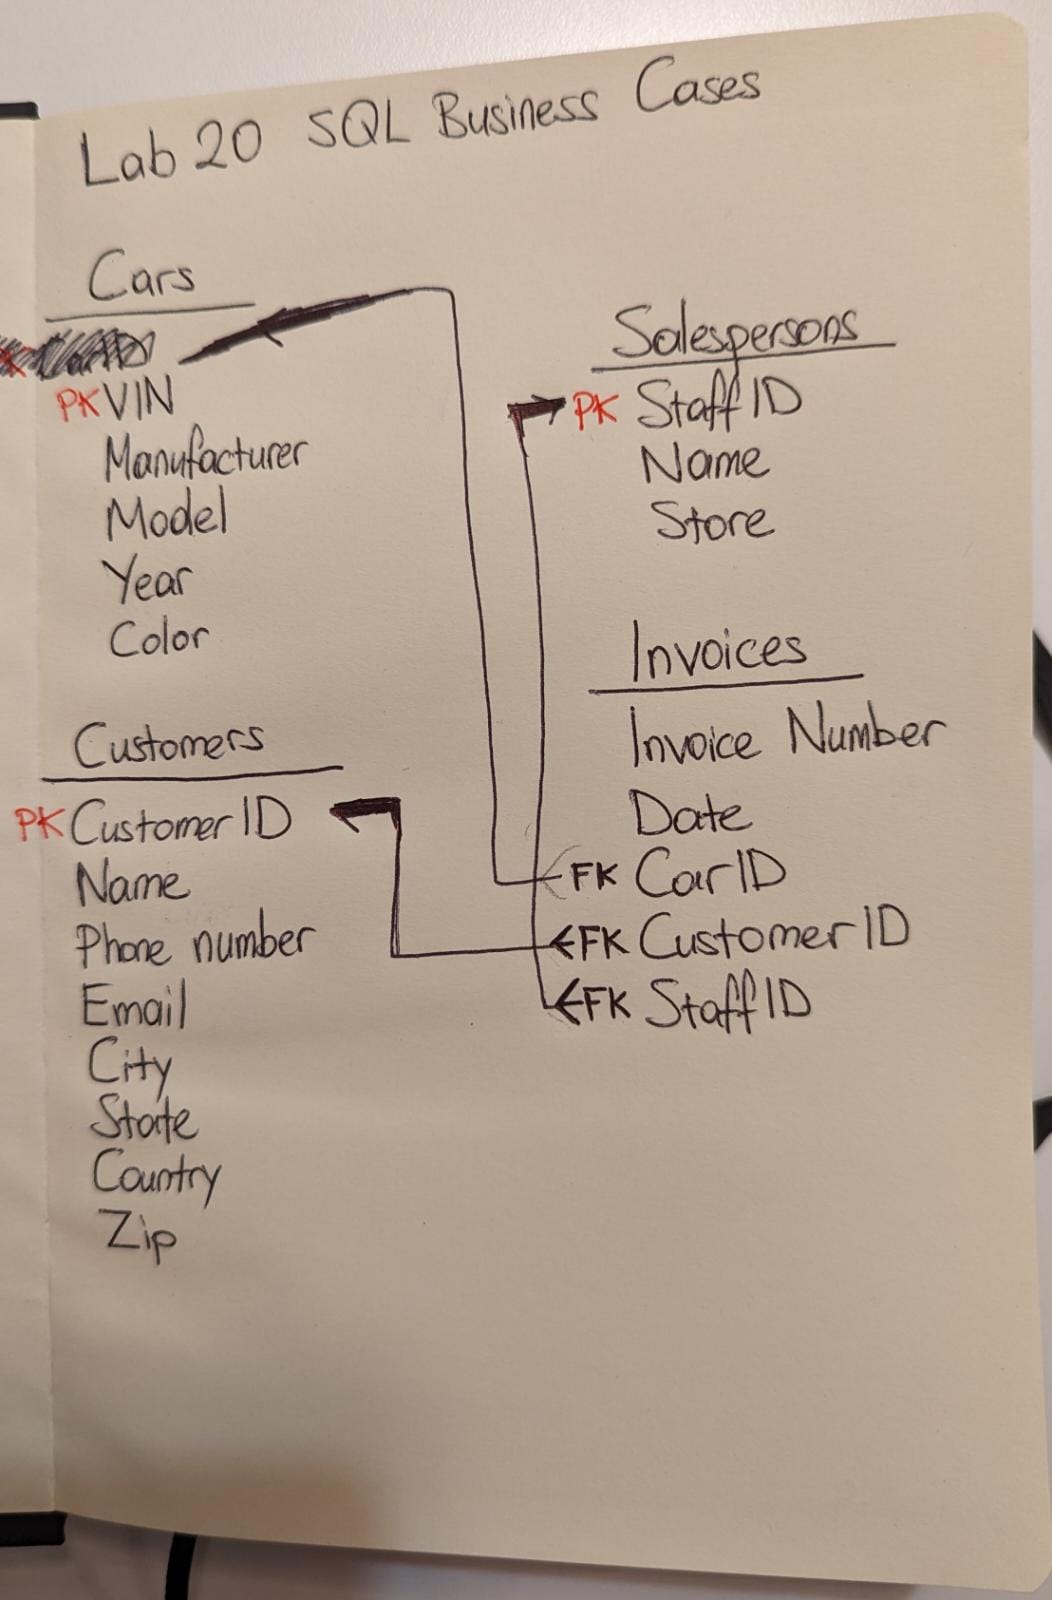 Lab 20 SQL Business Cases
Cars
PK VIN
Manufacturer
Model
Year
Color
Customers
PK Customer ID
Name
Phone number
Email
City
State
Country
Zip
Salespersons
PK Staff ID
Name
Store
Invoices
Invoice Number
Date
FK Car ID
FK Customer ID
FK Staff ID